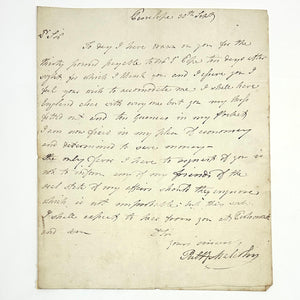 Penelope 30th Sept
Dr Sir
To day I have drawn on you for the
thirty pound payable to Mr S. Pope ten days after
sight for which I thank you and assure you I
felt you wish to accomodate me I shall have
England clear with every one but you my Shop
fitted out and ten Guineas in my Pocket
I am now fixed in my plan of economy
and determined to save money
the only favor I have to request of you is
not to inform any of my friends of the
real state of my affairs should they enquire
which is not improbable; but this
I shall expect to hear from you at
and am Dr Sir
yours sincerely
Malcolm